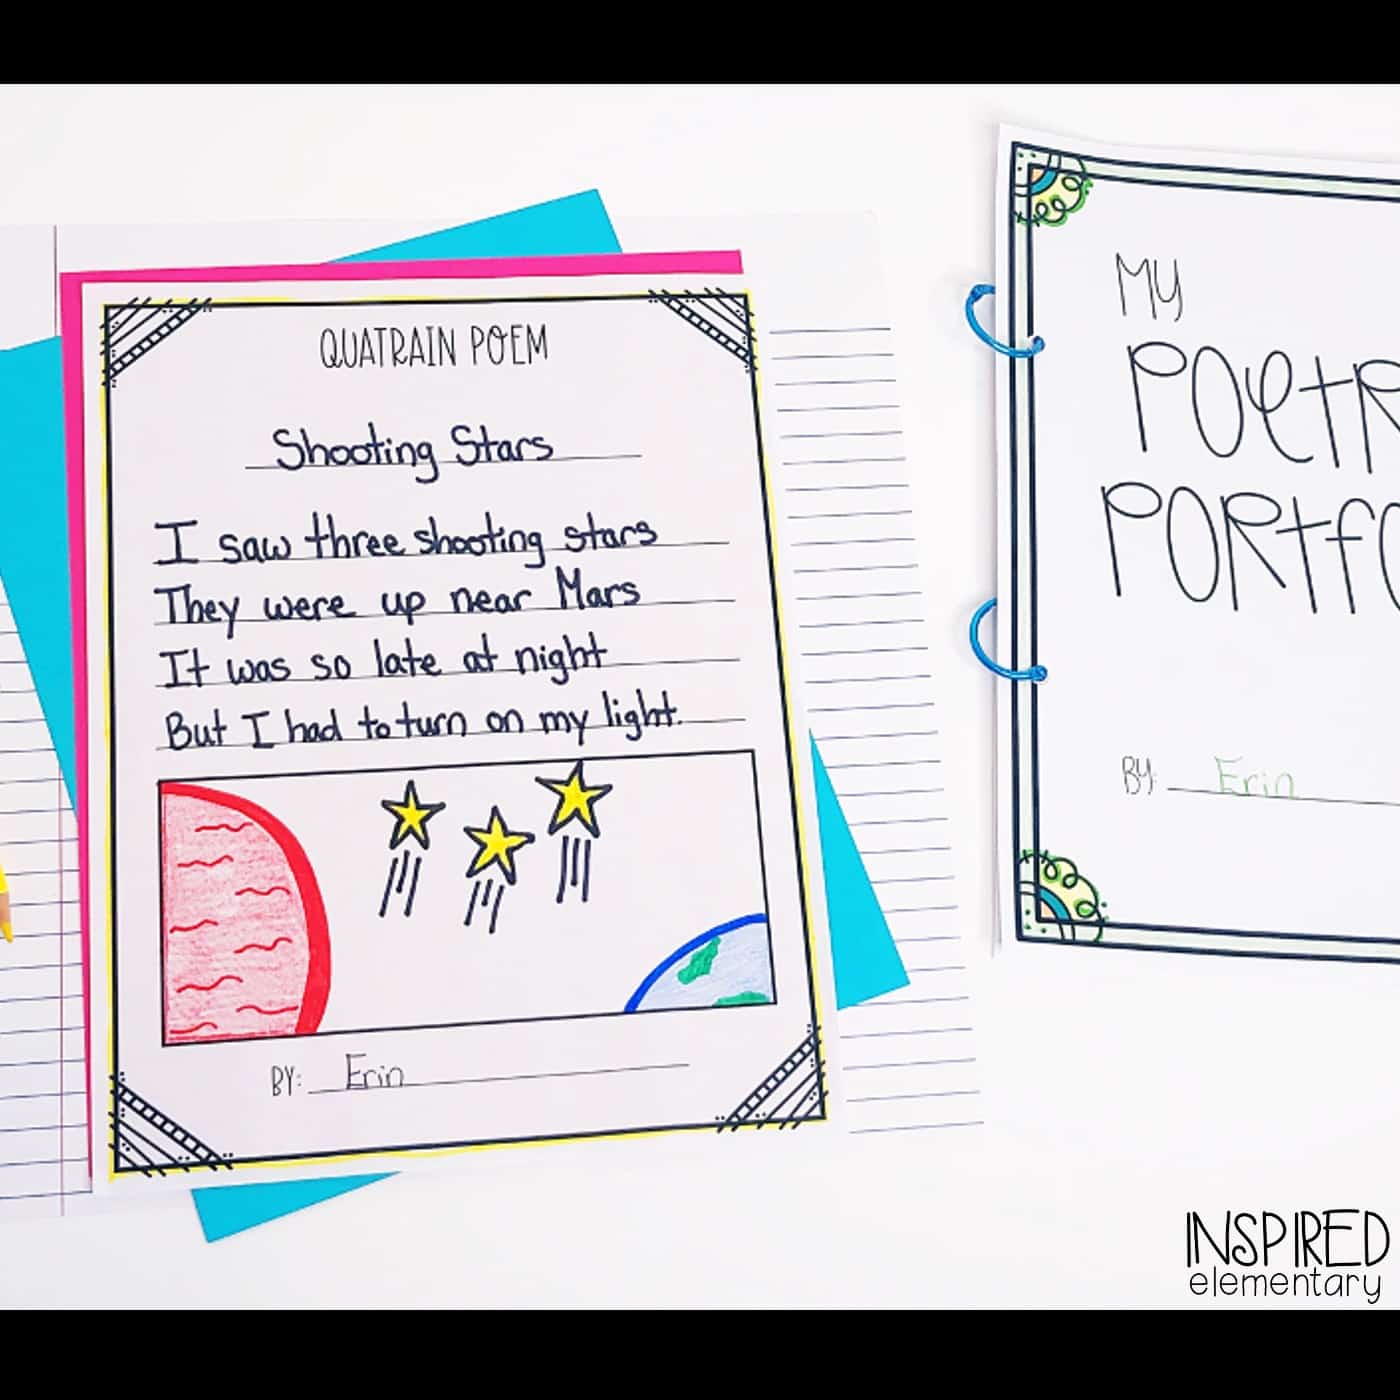 QUATRAIN POEM
Shooting Stars
I saw three shooting stars
They were up near Mars
It was so late at night
But I had to turn on my light.
BY: Erin
MY
POETR
PORTFO
BY: Erin
INSPIRED
elementary